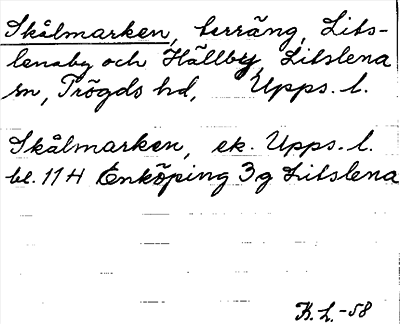 Skålmarken, terräng, Lits-
lenaby och Hällby, Litslena
sn, Trögds hd, Upps. l.
Skålmarken, ek. Upps. l.
bl. 11 H Enköping 3g Litslena
K. L. -58